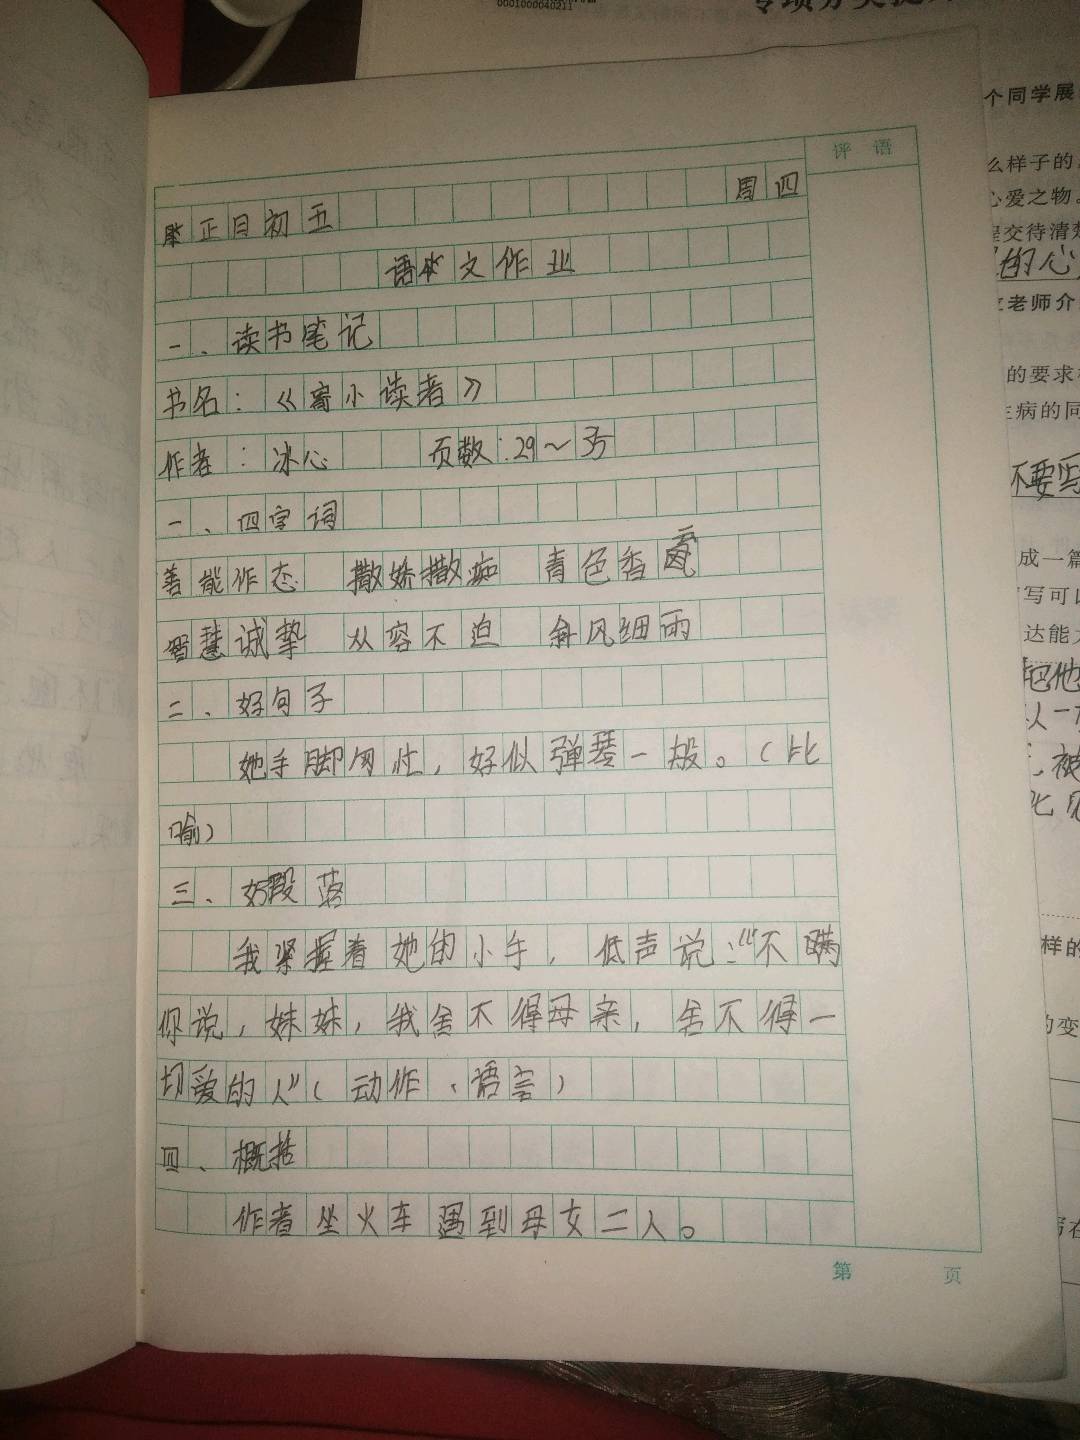 0001000040211
专项分类提
评 语
正月初五 周四
语文作业
一、读书笔记
书名：《寄小读者》
作者：冰心 页数：29～35
一、四字词
善能作态 撒娇撒痴 青色香
智慧诚挚 从容不迫 斜风细雨
二、好句子
她手脚匆忙，好似弹琴一般。（比
喻）
三、好段落
我紧握着她的小手，低声说：“不瞒
你说，妹妹，我舍不得母亲，舍不得一
切爱的人”（动作、语言）
四、概括
作者坐火车遇到母女二人。
第 页
个同学展
么样子的
心爱之物。
交待清楚
的心
老师介
的要求
生病的同
不要写
成一篇
写可以
达能
把他
以一
被
样的
的变